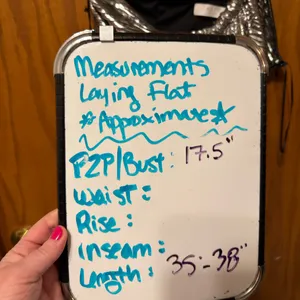 Measurements
Laying Flat
*Approximate*
P2P/Bust: 17.5"
Waist:
Rise:
Inseam:
Length: 35"-38"